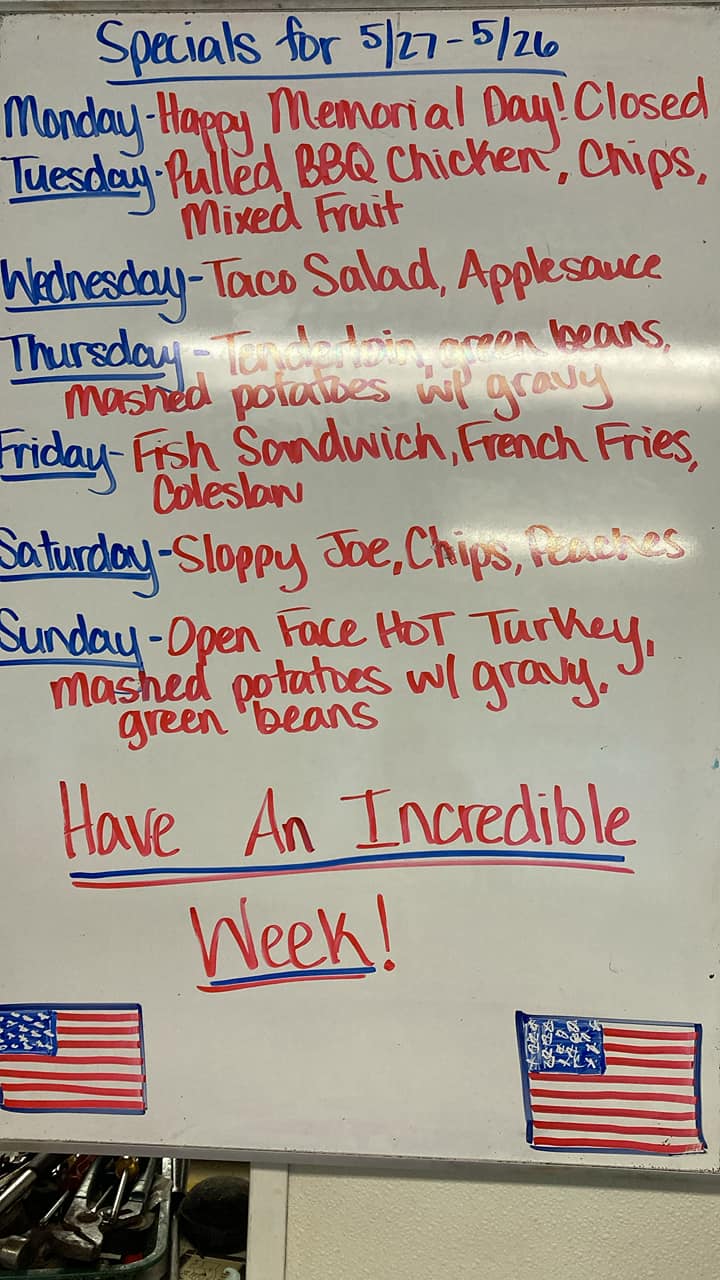 Specials for 5/27-5/26
Monday-Happy Memorial Day! Closed
Tuesday-Pulled BBQ Chicken, Chips,
Mixed Fruit
Wednesday-Taco Salad, Applesauce
Thursday-Tenderloin, green beans,
mashed potatoes w/ gravy
Friday-Fish Sandwich, French Fries,
Coleslaw
Saturday-Sloppy Joe, Chips, Peaches
Sunday-Open Face HOT Turkey,
mashed potatoes w/ gravy,
green beans
Have An Incredible
Week!